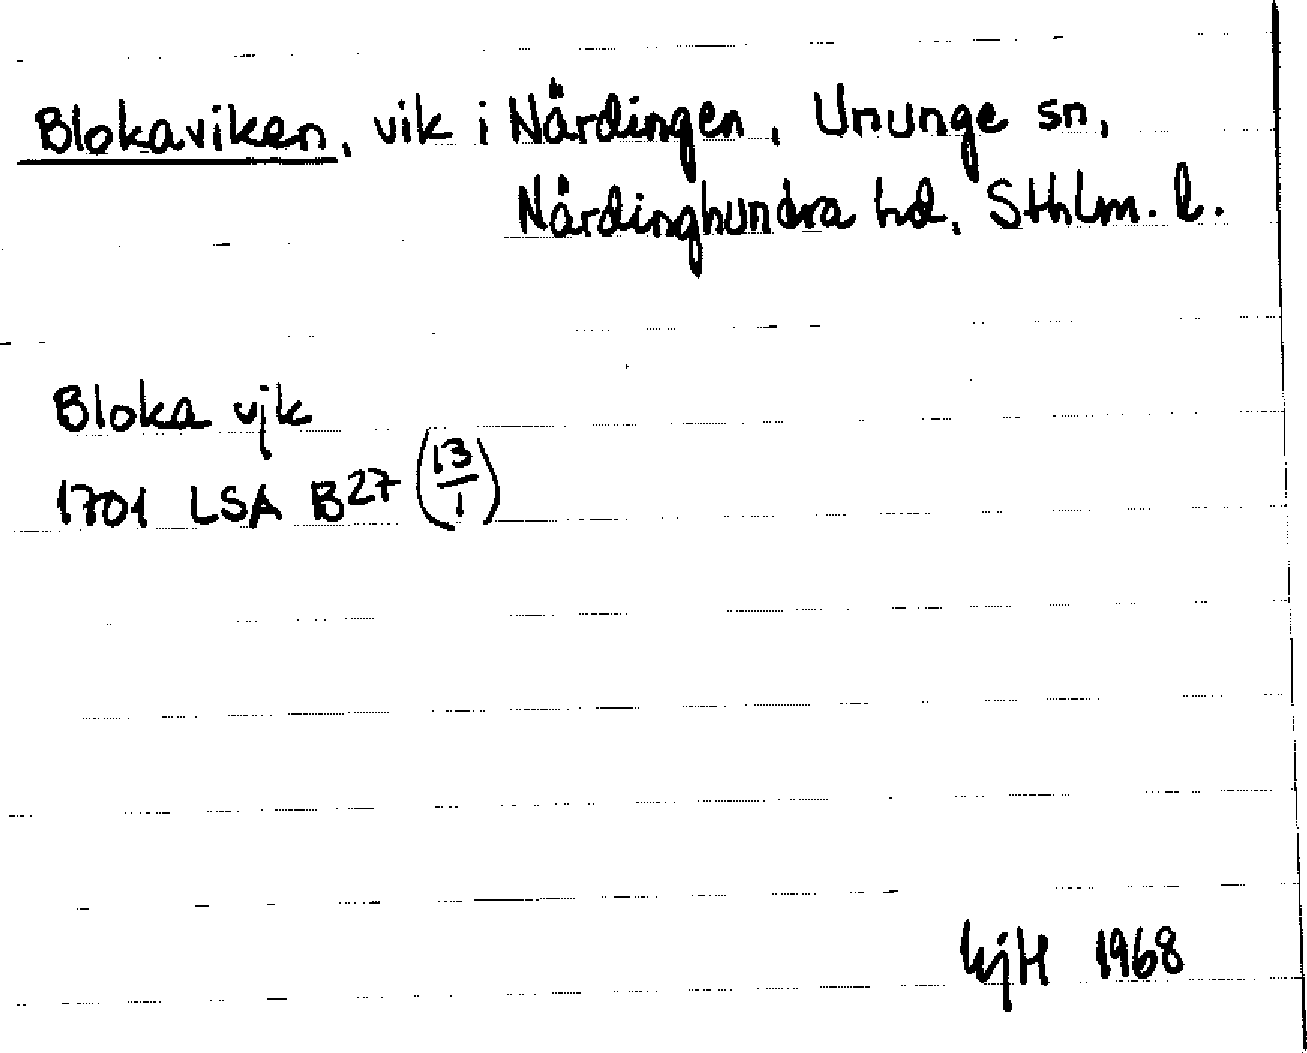 Blokaviken, vik i Närdingen, Ununge sn,
Närdinghundra hd, Sthlm. l.
Bloka vjk
1701 LSA B27 (13/1)
1968